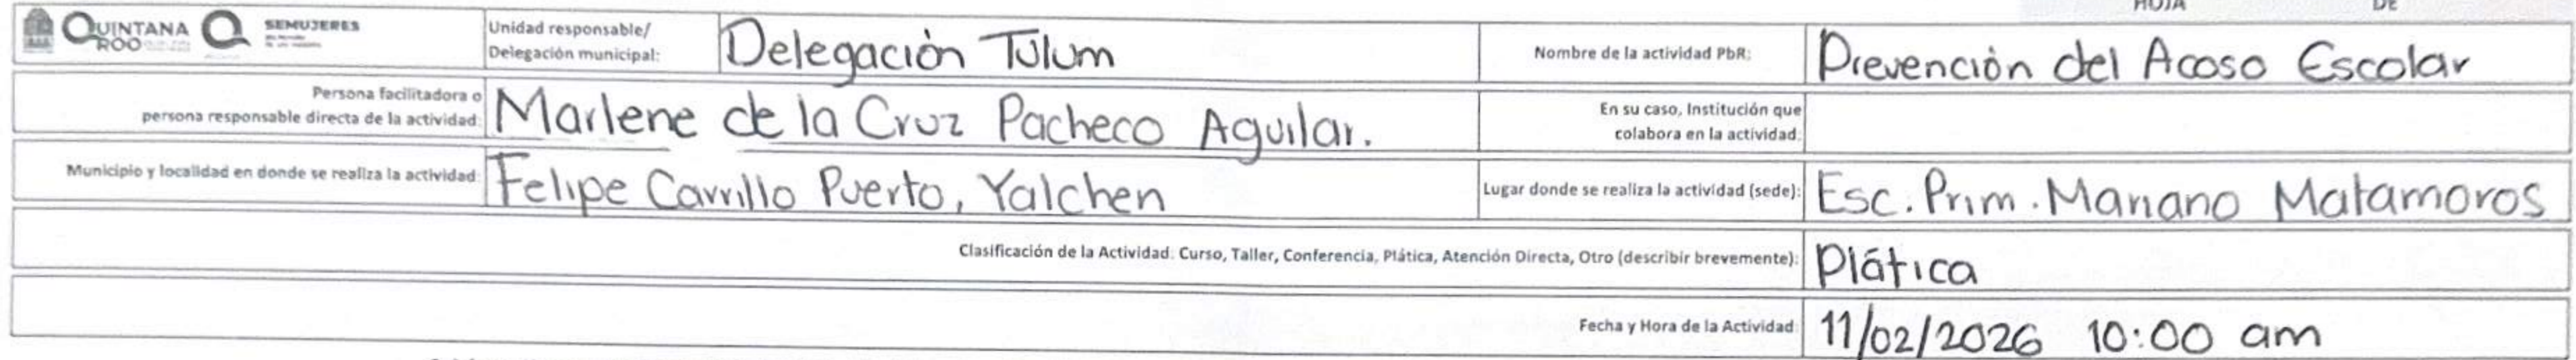 HOJA DE
QUINTANA ROO SEMUJERES
Unidad responsable/
Delegación municipal: Delegación Tulum
Nombre de la actividad PbR: Prevención del Acoso Escolar
Persona facilitadora o
persona responsable directa de la actividad: Marlene de la Cruz Pacheco Aguilar.
En su caso, Institución que
colabora en la actividad:
Municipio y localidad en donde se realiza la actividad: Felipe Carrillo Puerto, Yalchen
Lugar donde se realiza la actividad (sede): Esc. Prim. Mariano Matamoros
Clasificación de la Actividad: Curso, Taller, Conferencia, Plática, Atención Directa, Otro (describir brevemente): Plática
Fecha y Hora de la Actividad: 11/02/2026 10:00 am